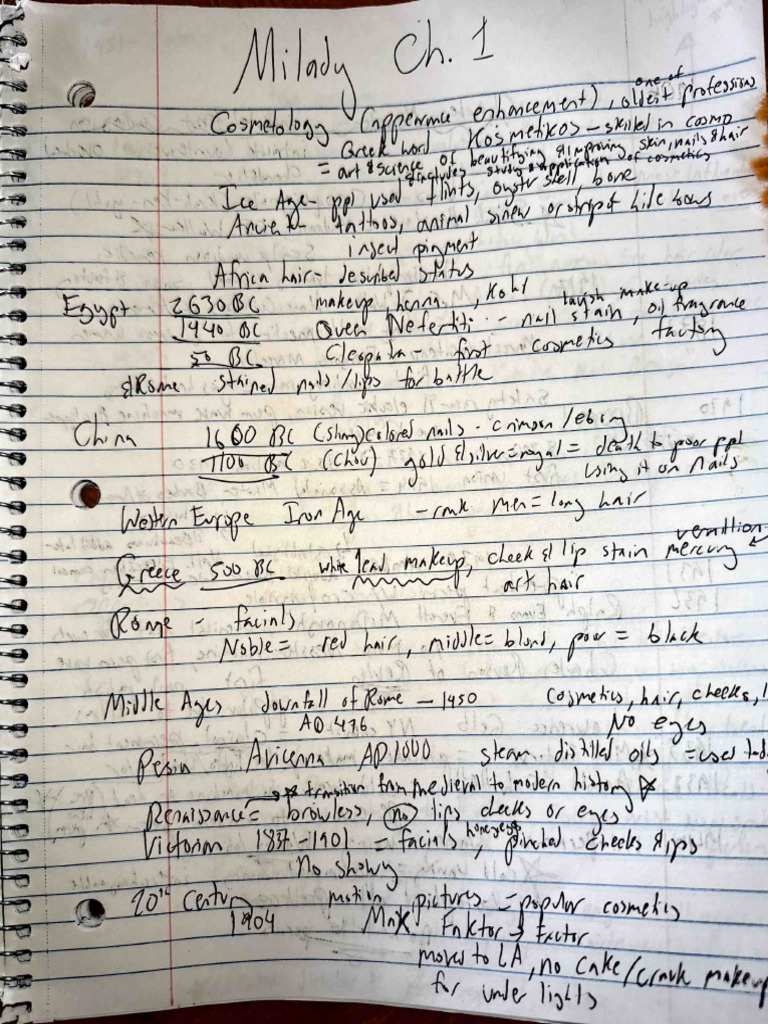 Milady Ch. 1
Cosmetology (appearance enhancement), one of oldest professions
Greek word Kosmetikos - skilled in cosmo
= art & science of beautifying & improving skin, nails & hair
& includes study & application of cosmetics
Ice Age - ppl used flints, oyster shell, bone
Ancient - tattoos, animal sinew or strip of hide bows
inject pigment
Africa hair - described status
Egypt 2630 BC makeup, henna, Kohl
1440 BC Queen Nefertiti - nail stain, lavish make-up, oil fragrance
50 BC Cleopatra - first cosmetics factory
& Rome stained nails/lips for battle
China 1600 BC (Shang) colored nails - crimson/ebony
1100 BC (Chou) gold & silver = royal = death to poor ppl
using it on nails
Western Europe Iron Age - men = long hair
Greece 500 BC white lead makeup, cheek & lip stain vermillion mercury
hair
Rome - facials
Noble = red hair, middle = blond, poor = black
Middle Ages downfall of Rome - 1450 cosmetics, hair, cheeks,
AD 476 No eyes
Pesia Avicenna AD 1000 steam distilled oils = used
transition from medieval to modern history
Renaissance = browless, no lips cheeks or eyes
Victorian 1837-1901 = facials honey eggs, pinched cheeks & lips
No showy
20th Century motion pictures = popular cosmetics
1904 Max Faktor → Factor
moved to LA, no cake/crack makeup
for under lights